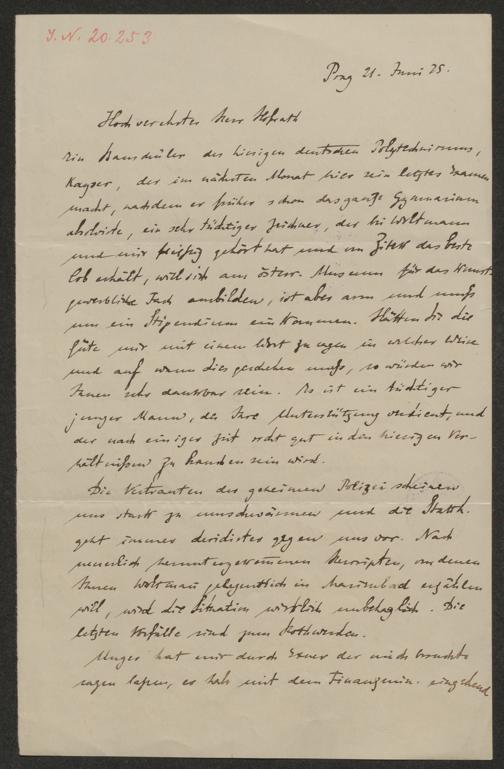 J. N. 20.253
Prag 21. Juni 75.
Hochverehrter Herr Hofrath
Ein Bauschüler des hiesigen deutschen Polytechnicums,
Kayser, der im nächsten Monat hier sein letztes Examen
macht, nachdem er früher schon das ganze Gymnasium
absolvirte, ein sehr tüchtiger Zeichner, der bei Woltmann
und mir fleißig gehört hat und von Zitek das beste
Lob erhält, will sich am österr. Museum für das kunst-
gewerbliche Fach ausbilden, ist aber arm und muß
um ein Stipendium einkommen. Hätten Sie die
Güte mir mit einem Wort zu sagen in welcher Weise
und auf wann dies geschehen muß, so würden wir
Ihnen sehr dankbar sein. Es ist ein tüchtiger
junger Mann, der Ihre Unterstützung verdient, und
der nach einiger Zeit recht gut in den hiesigen Ver-
hältnißen zu brauchen sein wird.
Die Vertrauten der geheimen Polizei scheinen
uns stark zu umschwärmen und die Statth.
geht immer decidirter gegen uns vor. Nach
neuerlich heruntergekommenen Rescripten, von denen
Ihnen Woltmann gelegentlich in Marienbad erzählen
will, wird die Situation wirklich unbehaglich. Die
letzten Vorfälle sind zum Rothwerden.
Unger hat mir durch Exner der mich besuchte
sagen laßen, er habe mit dem Finanzmin. eingehend